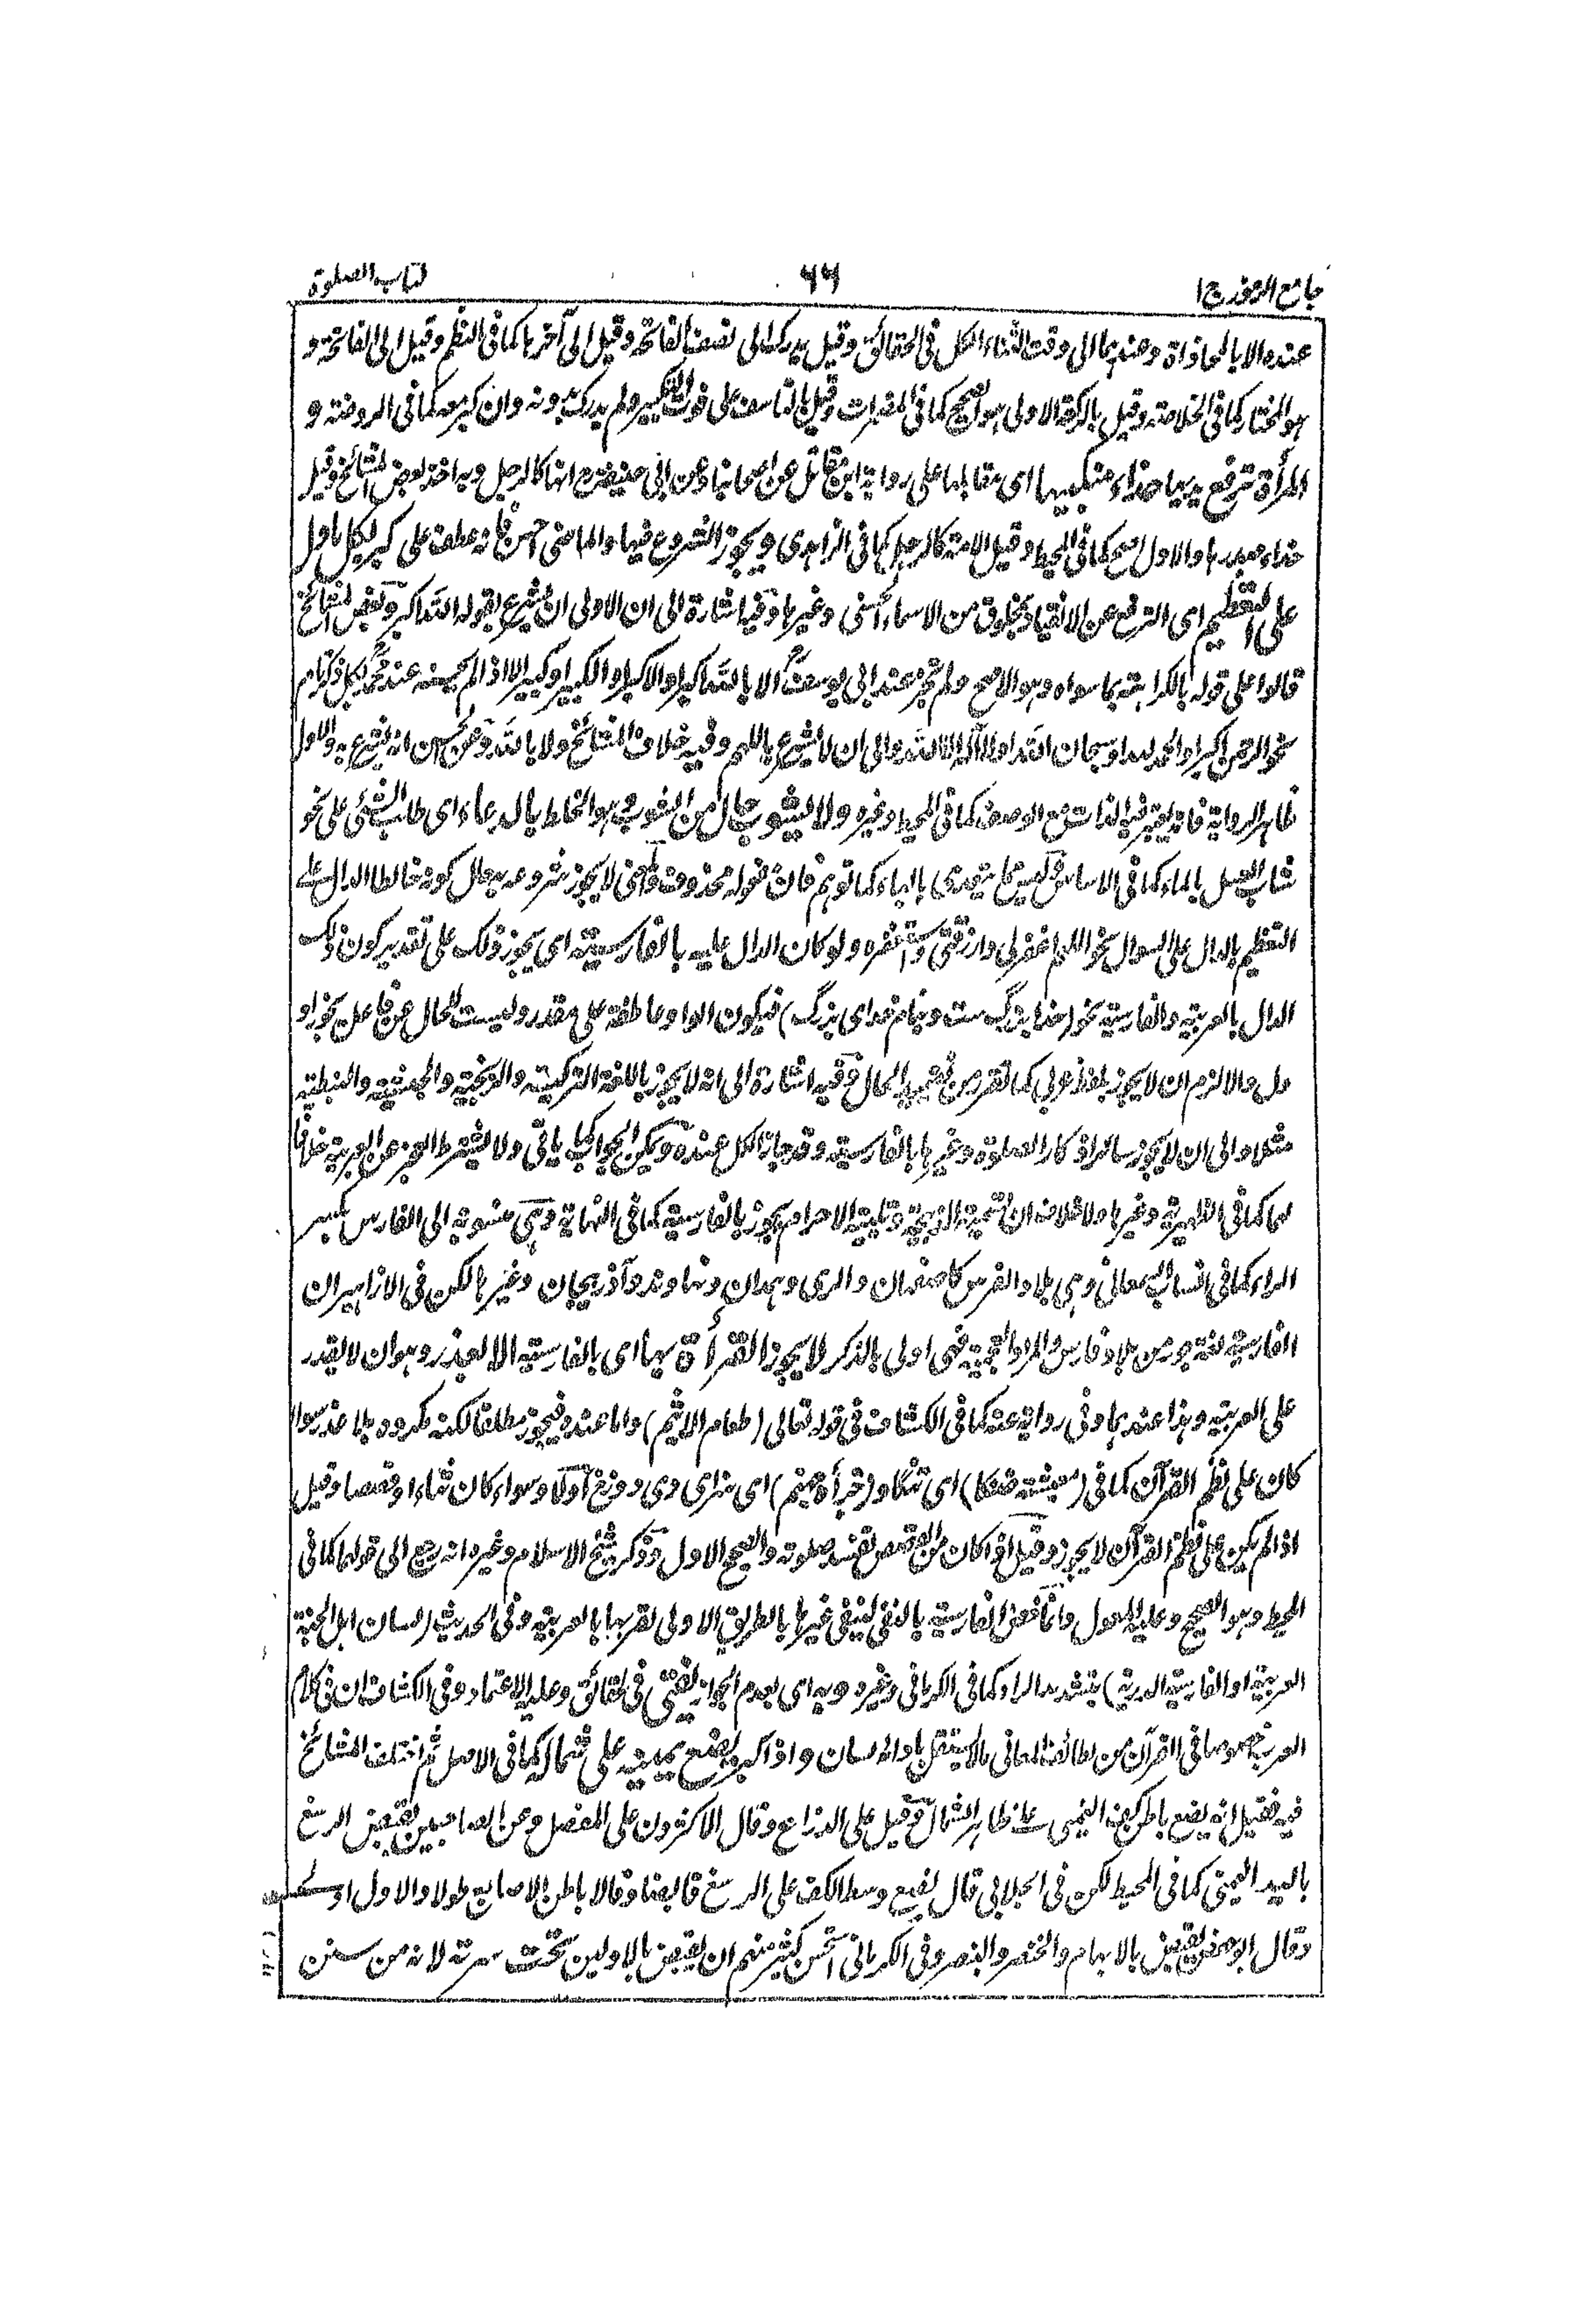 جامع الرموز ج ١
٦٦
كتاب الصلوة
عنده الا بالمحاذاة وعندهما الى وقت الثناء الكل فى الحقائق وقيل يدرك الى نصف الفاتحة وقيل الى آخرها كما فى النظم وقيل الى الفاتحة و
هو المختار كما فى الخلاصة وقيل بالركعة الاولى هو الصحيح كما فى المضمرات وقيل بالتاسف على فوت التكبير ولم يدرك بدونه وان كبر معه كما فى الروضة و
المرأة ترفع يديها حذاء منكبيها اى مقابلها على رواية ابن مقاتل عن اصحابنا وعن ابى حنيفة رح انها كالرجل وبه اخذ بعض المشائخ وقيل
حذاء صدرها والاول اصح كما فى المحيط وقيل الامة كالرجل كما فى الزاهدى ويجوز الشروع فيها والماضى احسن فانه عطف على كبر بكل ما دل
على التعظيم اى الترفع عن الانقياد لمخلوق من الاسماء الحسنى وغيرها وفيه اشارة الى ان الاولى ان يشرع بقوله الله اكبر وبعض المشائخ
قالوا على قوله بالكراهة بما سواه وهو الاصح ولم يجز عند ابى يوسف رح الا بالله اكبر او الاكبر او الكبير او كبير الا اذا لم يحسنه عند محمد رح بكل ذكر تام
نحو الرحمن اكبر او الحمد لله او سبحان الله او لا آله الا الله والى ان لا يشرع باللهم وفيه خلاف المشائخ ولا بالله وعن الحسن انه يشرع به والاول
ظاهر الرواية فانه يعتبر فيه الذات مع الوصف كما فى المحيط وغيره ولا يشوب حال من الشوب وهو الخلط بالدعاء اى طلب الشئ على نحو
شاب العسل بالماء كما فى الاساس وليس مما يتعدى بالباء كما توهم فان مفعوله محذوف والمعنى لا يجوز شروعه به حال كونه خالطا الدال على
التعظيم بالدال على السوال نحو اللهم اغفر لى وارزقنى واستغفره ولو كان الدال عليه بالفارسية اى يجوز ذلك على تقدير كون ذلك
الدال بالعربية والفارسية نحو (خدا بزرگ ست وبنام خداى بزرگ) فيكون الواو عاطفة على مقدر وليست للحال عن فاعل يجوز او
دل والا لزم ان لا يجوز بلفظ عربى كما تقرر من تقييد الحال وفيه اشارة الى انه لا يجوز باللغة التركية والزنجية والحبشية والنبطية
مثلا والى ان لا يجوز سائر اذكار الصلوة وغيرها بالفارسية وقد جاز الكل عنده ويمكن الجواب بما ياتى ولا يشترط العجز عن العربية خلافا
لهما كما فى الظهيرية وغيرها ولا خلاف ان تسمية الذبيحة وتلبية الاحرام يجوز بالفارسية كما فى النهاية وهى منسوبة الى الفارس بكسر
الراء كما فى انساب السمعانى وهى بلاد الفرس كاصفهان والرى وهمدان ونهاوند وآذربيجان وغيرها لكن فى الازاهير ان
الفارسية لغة جور من بلاد فارس والمراد العجمية فهى اولى بالذكر لا يجوز القرأة بها اى بالفارسية الا لعذر وهو ان لا يقدر
على العربية وهذا عندهما وفى رواية عنه كما فى الكشاف فى قوله تعالى (طعام الاثيم) واما عنده فيجوز مطلقا لكنه مكروه بلا عذر سواء
كان على نظم القرآن كما فى (معيشة ضنكا) اى تنگا و(جزأه جهنم) اى سزاى وى دوزخ اولا وسواء كان ثناء او قصصا وقيل
اذا لم يكن على نظم القرآن لا يجوز وقيل اذا كان من القصص تفسد صلوته والصحيح الاول وذكر شيخ الاسلام وغيره انه رجع الى قولهما كما فى
المحيط وهو الصحيح وعليه المعول وانما خص الفارسية بالنفى لينفى غيرها بالطريق الاولى لقربها بالعربية وفى الحديث (لسان اهل الجنة
العربية او الفارسية الدرية) بتشديد الراء كما فى الكرمانى وغيره وبه اى بعدم الجواز يفتى فى الحقائق وعليه الاعتماد وفى الكشاف ان فى كلام
العرب خصوصا فى القرآن من لطائف المعانى ما لا يستقل باداءه لسان واذا كبر يضع يمينه على شماله كما فى الاصل ثم اختلف المشائخ
فيه فقيل انه يضع باطن كفه اليمنى على ظاهر الشمال وقيل على الذراع وقال الاكثرون على المفصل وعن الصاحبين يقبض الرسغ
باليد اليمنى كما فى المحيط لكن فى الجلابى قال يضع وسط الكف على الرسغ قابضا وقالا باطن الاصابع طولا والاول اولى
وقال ابو جعفر يقبض بالابهام والخنصر والبنصر وفى الكرمانى استحسن كثير منهم ان يقبض بالاولين تحت سرته لانه من سنن